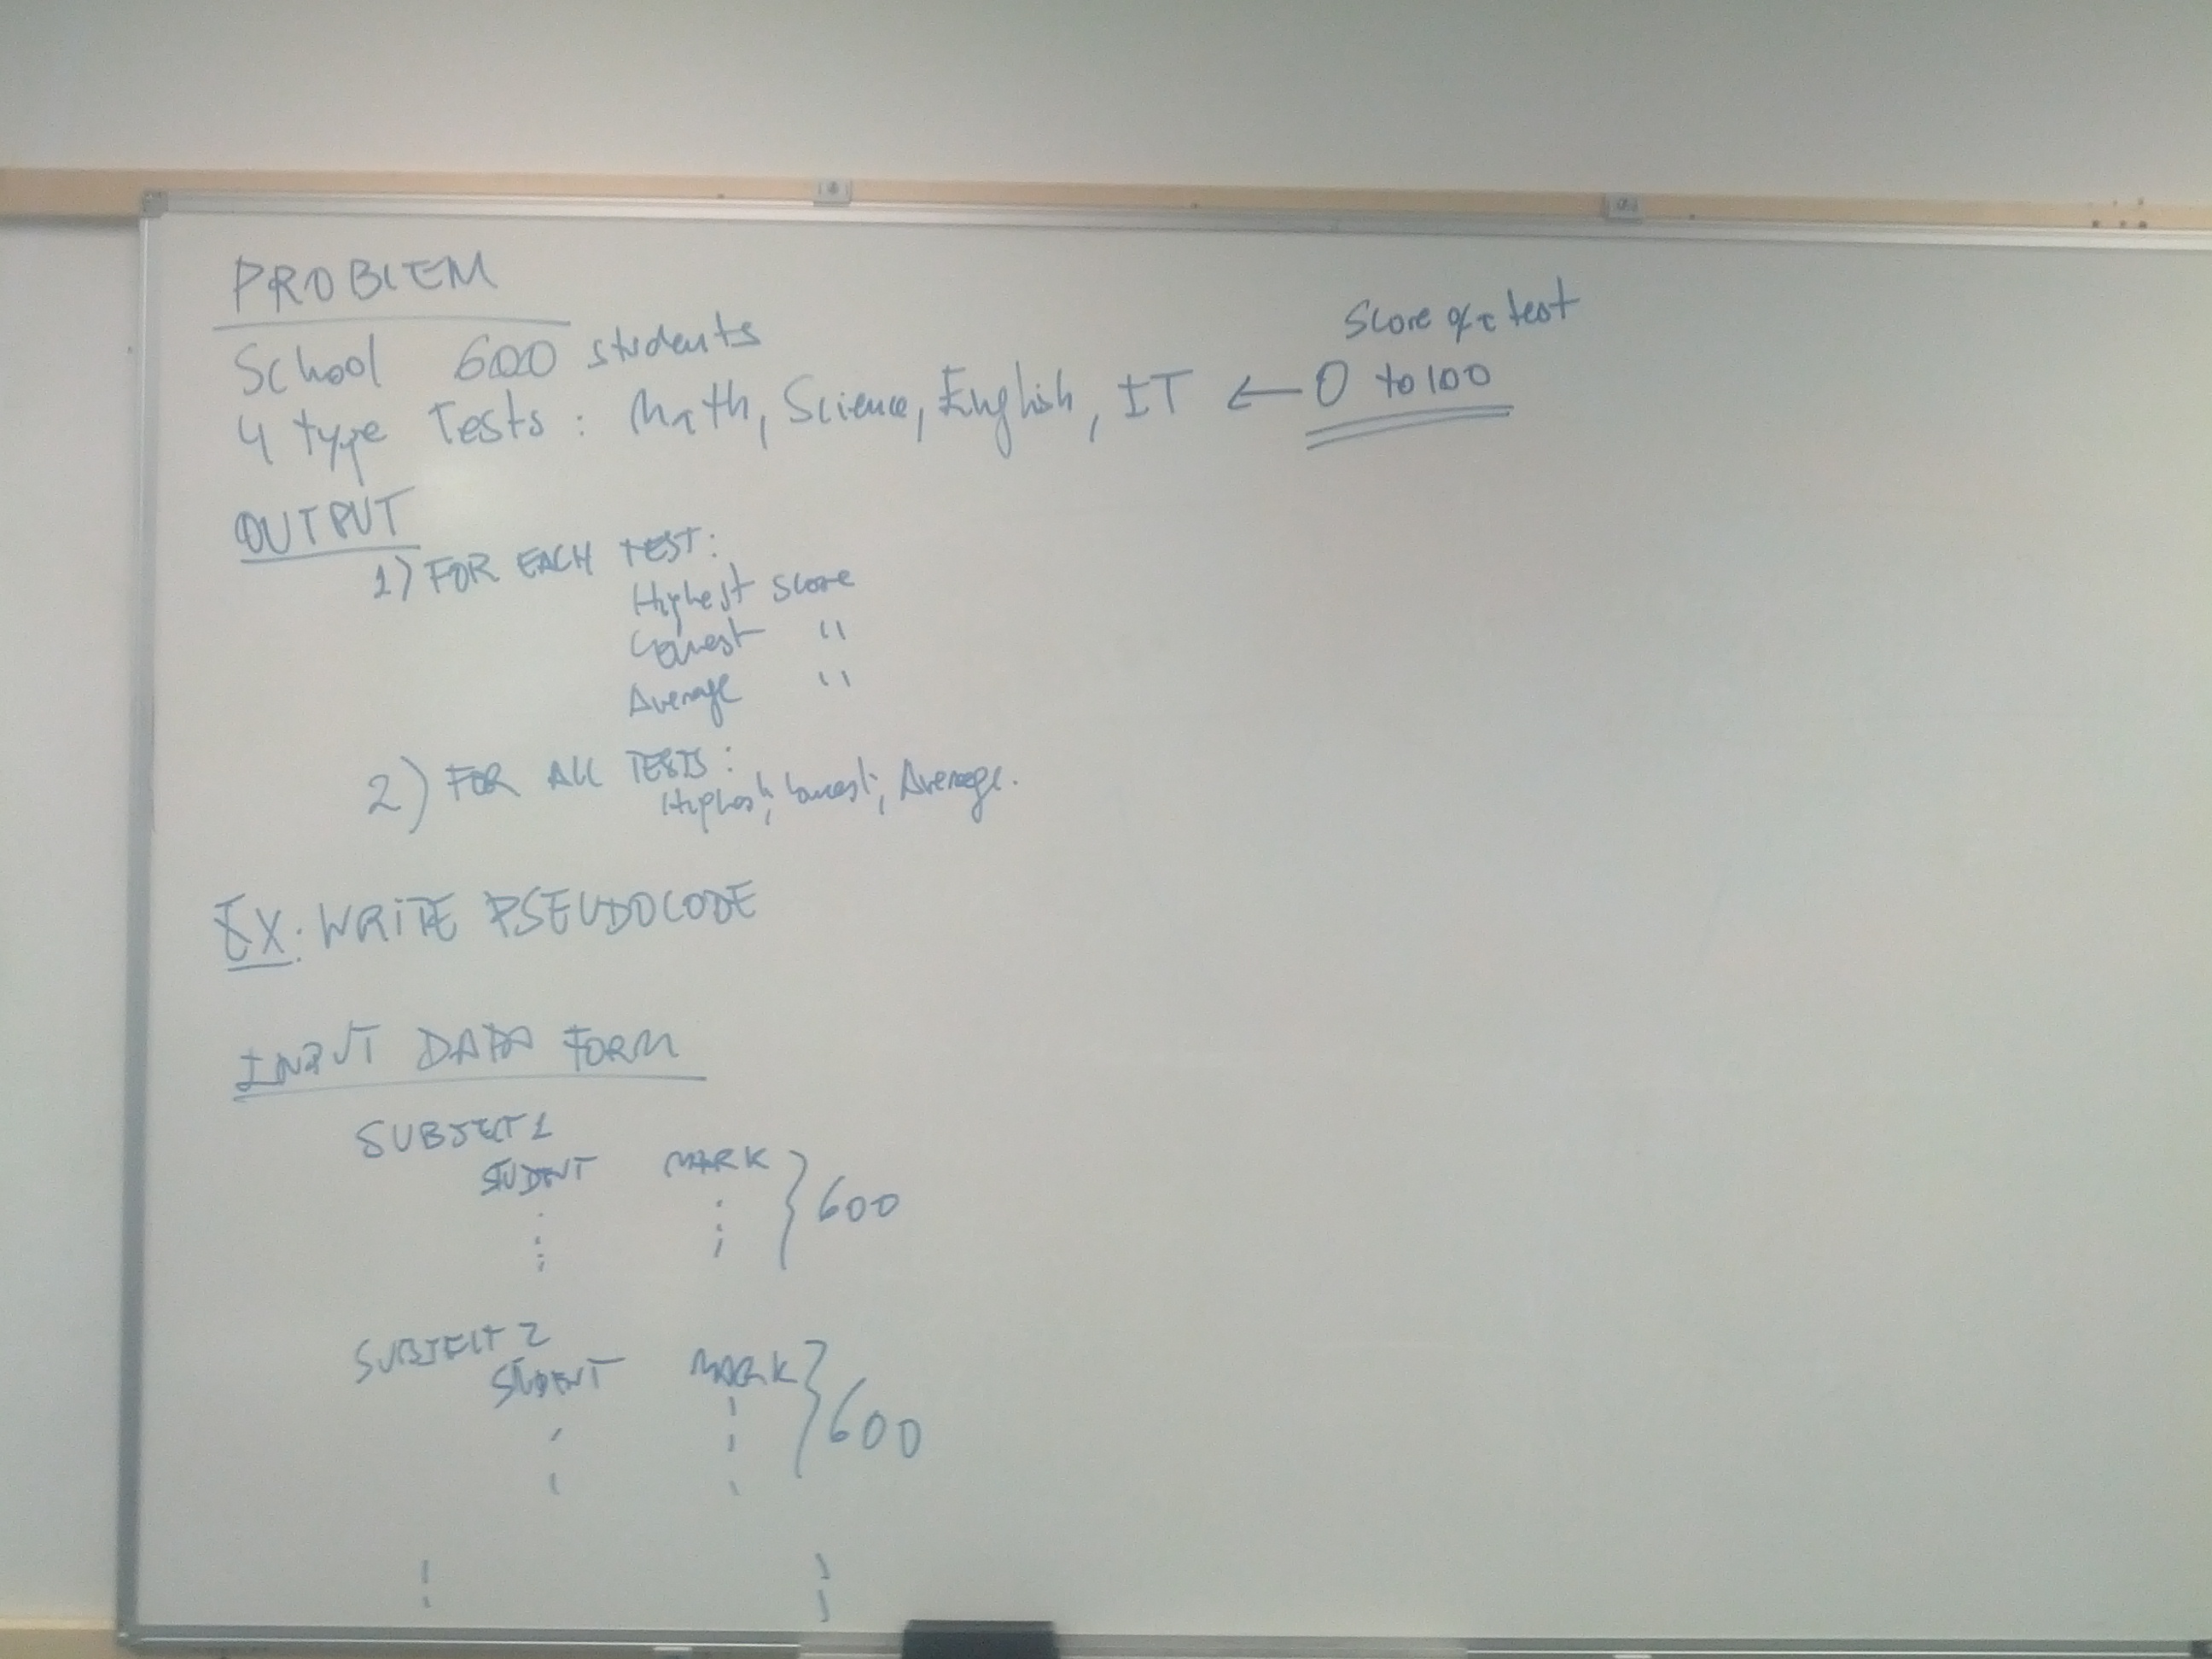 PROBLEM
School 600 students
4 type Tests : Math, Science, English, IT ← 0 to 100
Score of a test
OUTPUT
1) FOR EACH TEST:
Highest Score
Lowest "
Average "
2) FOR ALL TESTS:
Highest, lowest, Average.
EX: WRITE PSEUDOCODE
INPUT DATA FORM
SUBJECT 1
STUDENT MARK } 600
SUBJECT 2
STUDENT MARK } 600